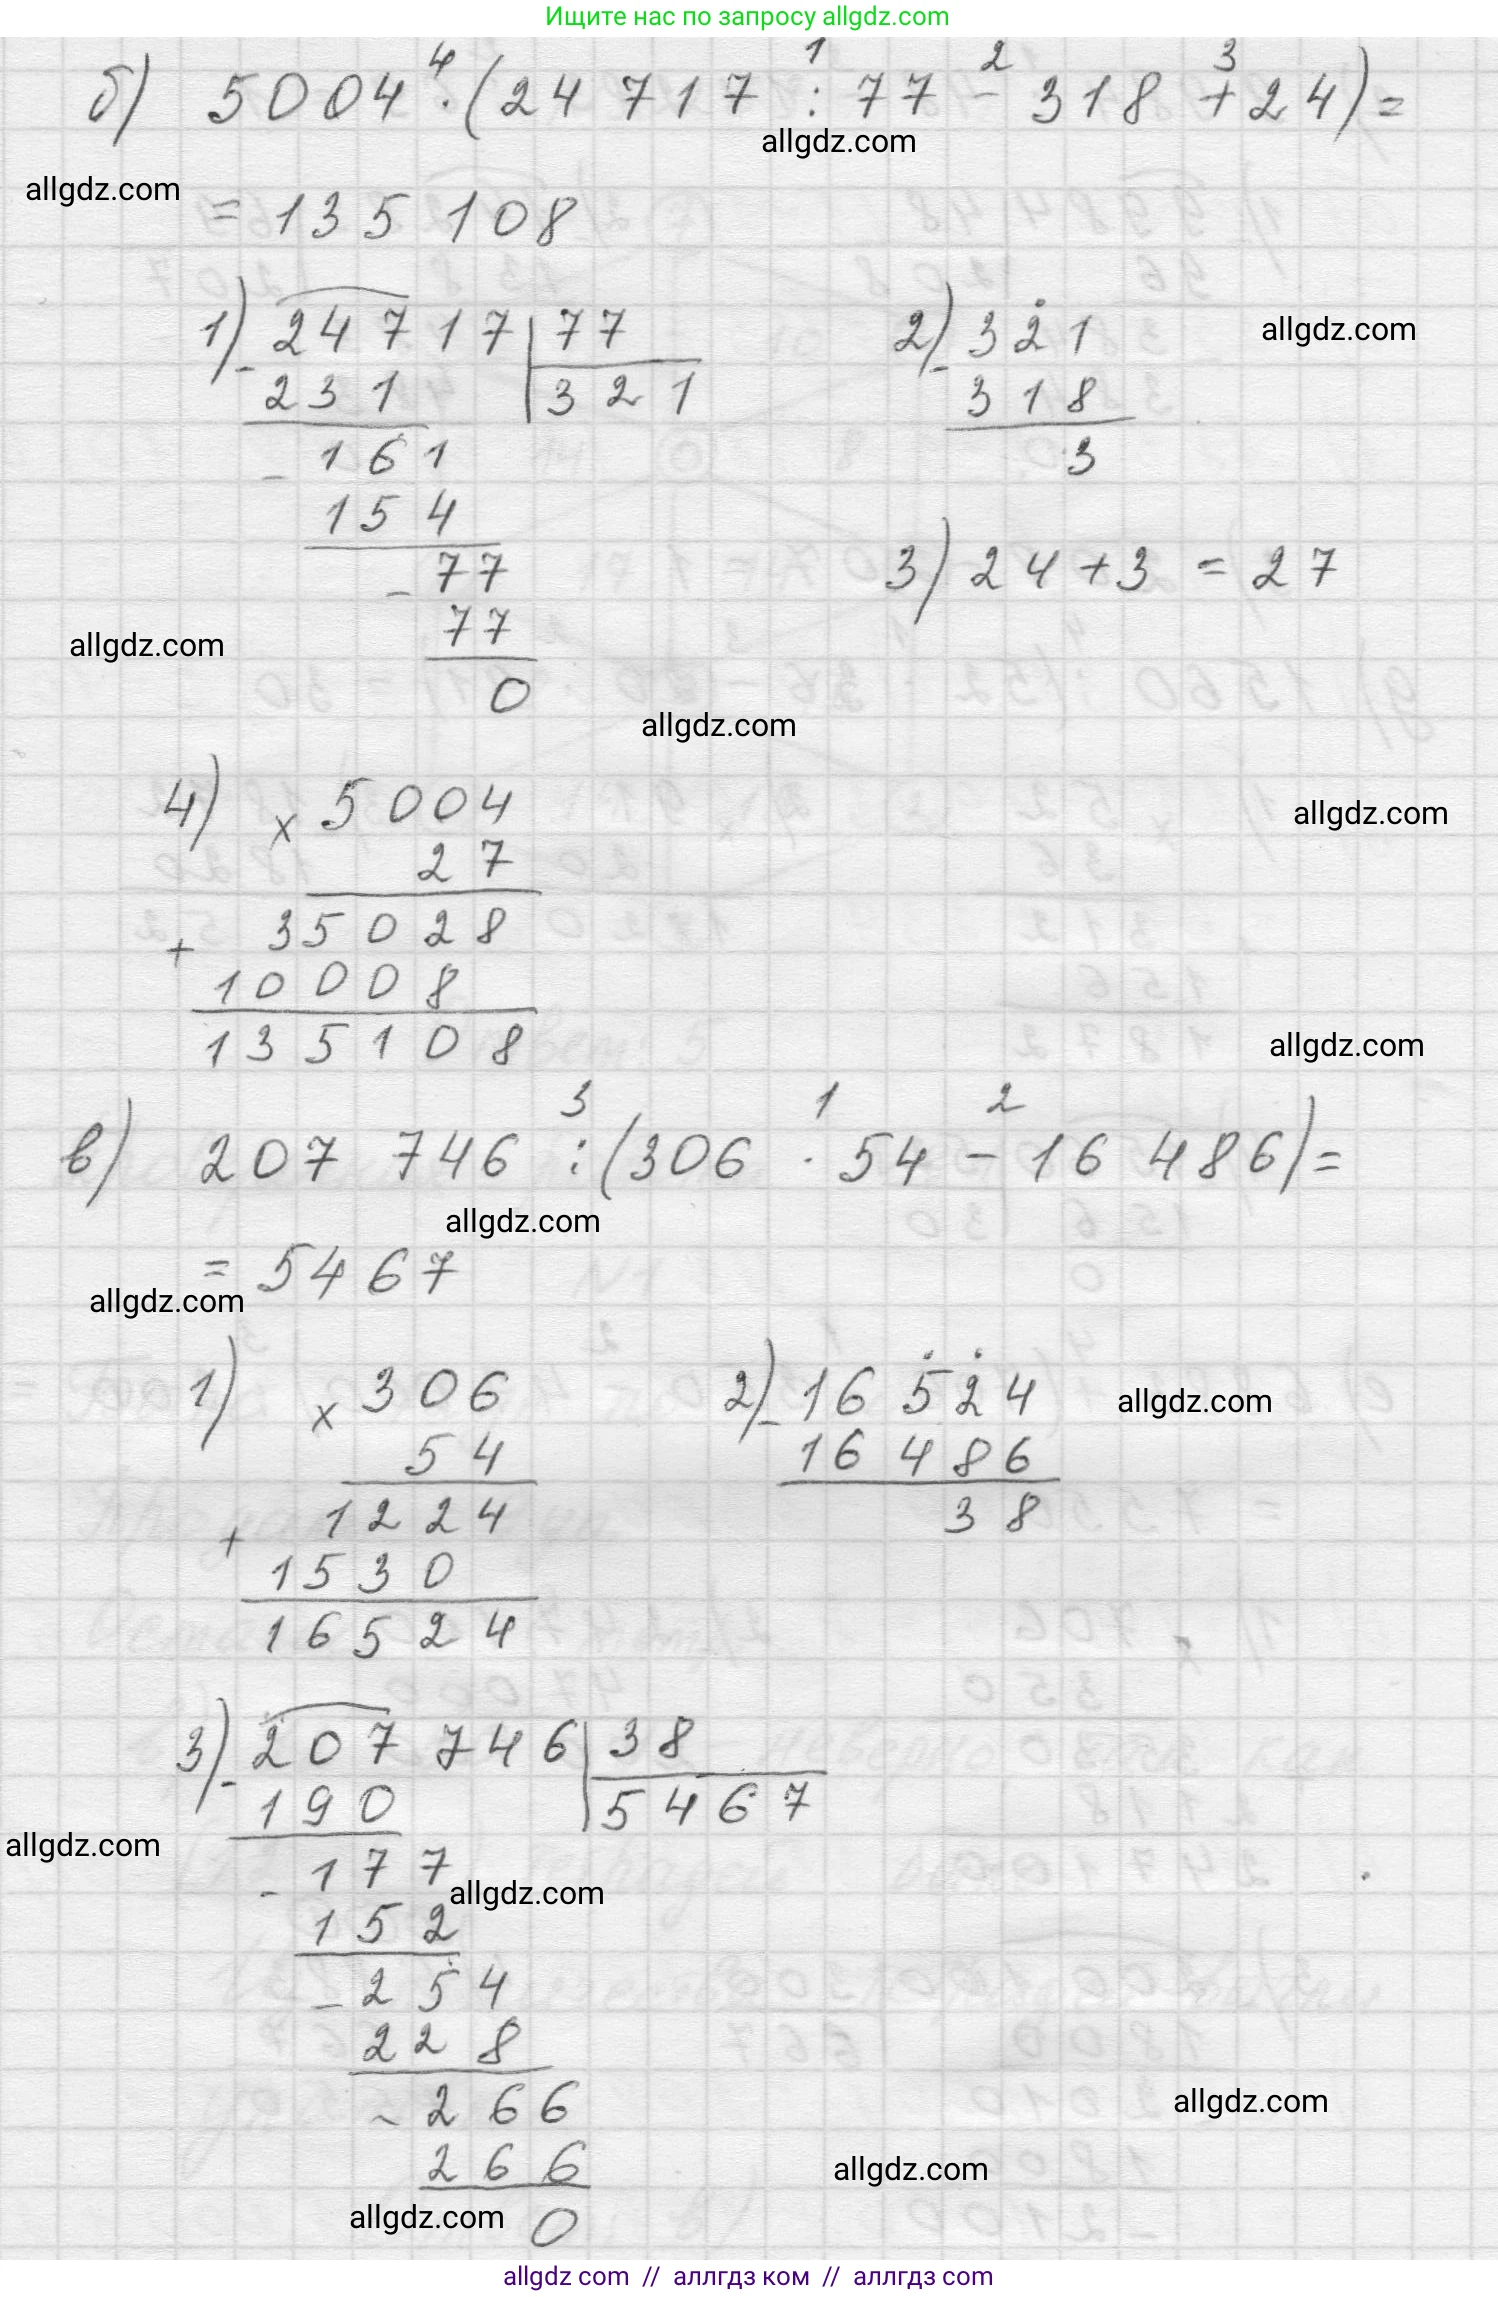 Ищите нас по запросу allgdz.com
4 1 2 3
б) 5004 · (24 717 : 77 - 318 + 24) =
allgdz.com
allgdz.com
= 135 108
1) - 24717 | 77
231 | 321
- 161
154
- 77
77
0
2) - 321
318
3
allgdz.com
3) 24 + 3 = 27
allgdz.com
allgdz.com
4) x 5004
27
+ 35028
10008
135108
allgdz.com
allgdz.com
3 1 2
в) 207 746 : (306 · 54 - 16 486) =
allgdz.com
= 5467
allgdz.com
1) x 306
54
+ 1224
1530
16524
2) - 16 524
16 486
38
allgdz.com
3) - 207 746 | 38
190 | 5467
- 177
152
- 254
228
- 266
266
0
allgdz.com
allgdz.com
allgdz.com
allgdz.com
allgdz.com
allgdz com // аллгдз ком // аллгдз com